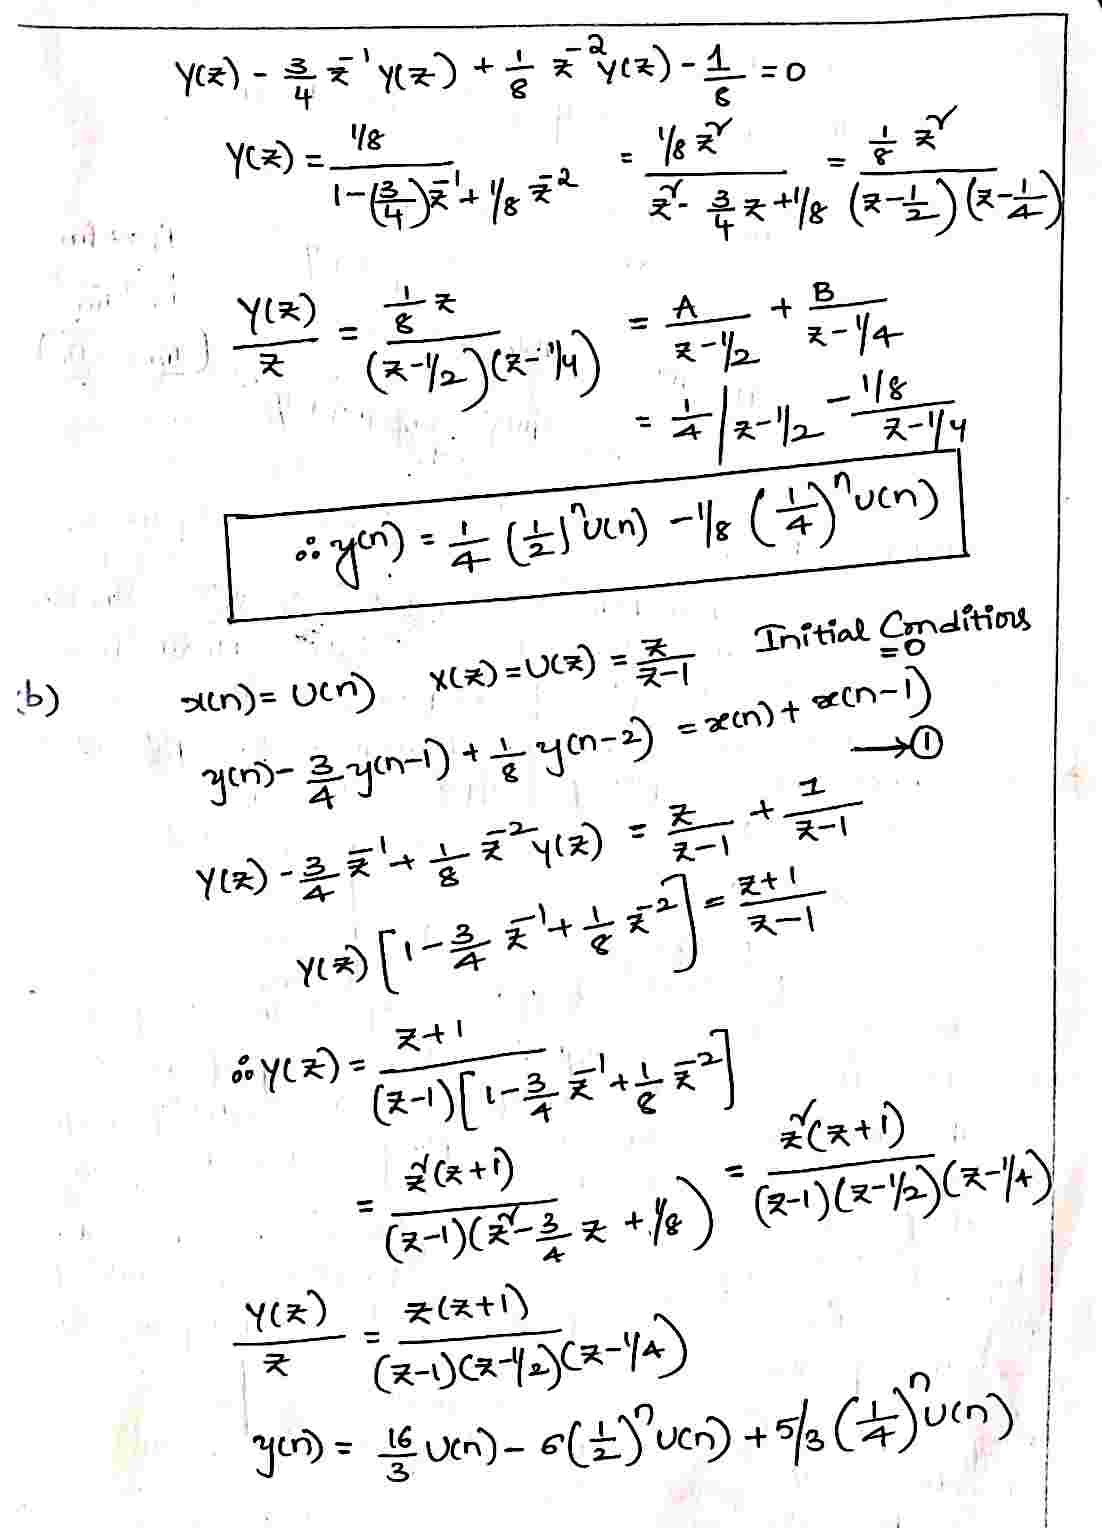 Y(z) - 3/4 z^-1 Y(z) + 1/8 z^-2 Y(z) - 1/8 = 0
Y(z) = 1/8 / (1-(3/4)z^-1 + 1/8 z^-2) = 1/8 z^2 / (z^2 - 3/4 z + 1/8) = 1/8 z^2 / ((z-1/2)(z-1/4))
Y(z)/z = 1/8 z / ((z-1/2)(z-1/4)) = A/(z-1/2) + B/(z-1/4)
= 1/4 / z-1/2 - 1/8 / (z-1/4)
∴ y(n) = 1/4 (1/2)^n u(n) - 1/8 (1/4)^n u(n)
b) x(n) = U(n) X(z) = U(z) = z/(z-1) Initial Conditions = 0
y(n) - 3/4 y(n-1) + 1/8 y(n-2) = x(n) + x(n-1) → ①
Y(z) - 3/4 z^-1 + 1/8 z^-2 Y(z) = z/(z-1) + 1/(z-1)
Y(z) [1 - 3/4 z^-1 + 1/8 z^-2] = (z+1)/(z-1)
∴ Y(z) = (z+1) / ((z-1)[1 - 3/4 z^-1 + 1/8 z^-2])
= z^2(z+1) / ((z-1)(z^2 - 3/4 z + 1/8)) = z^2(z+1) / ((z-1)(z-1/2)(z-1/4))
Y(z)/z = z(z+1) / ((z-1)(z-1/2)(z-1/4))
y(n) = 16/3 u(n) - 6(1/2)^n u(n) + 5/3 (1/4)^n u(n)